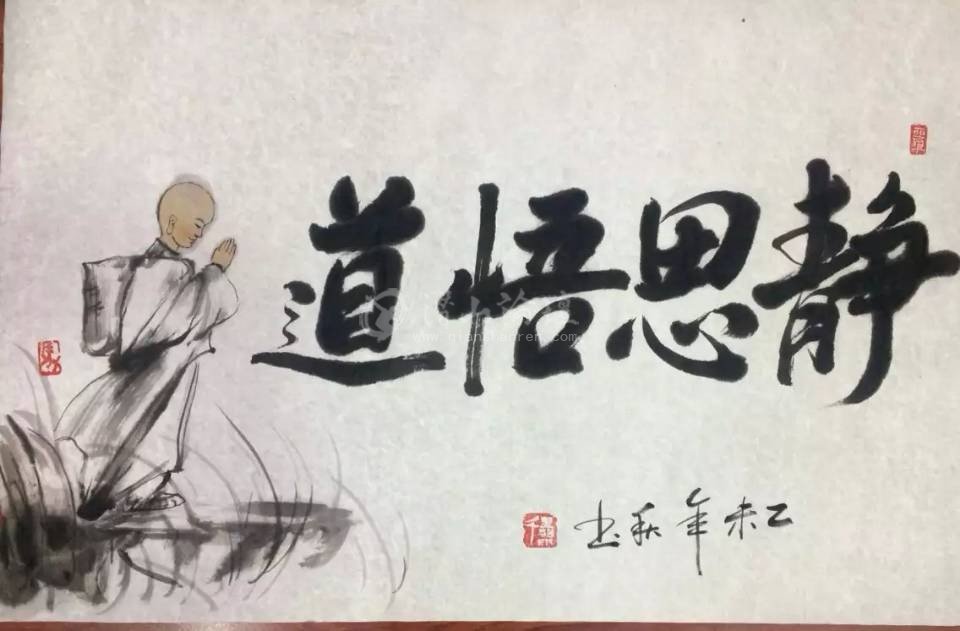 静思悟道
乙未年秋书
www.qianshanren.com